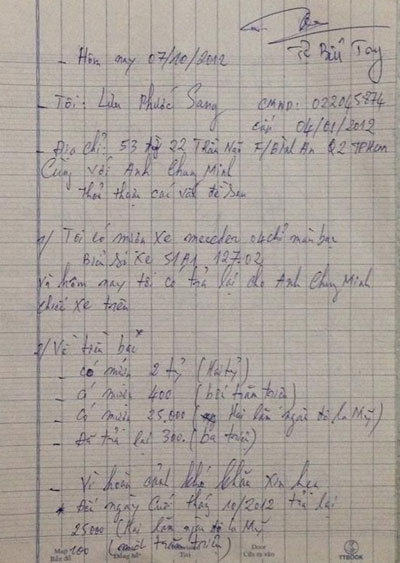 - Hôm nay 07/10/2012
- Tôi: Lưu Phước Sang CMND: 022045874
cấp 04/01/2012
- Địa chỉ: 53 22 Trần Não F/Bình An Q2 TPHCM
Cùng với Anh Chung Minh
thỏa thuận các vấn đề sau
1/ Tôi có mượn xe mecder 04 chỗ màu bạc
Biển số xe 51A1 127.02
và hôm nay tôi có trả lại cho Anh Chung Minh
chiếc xe trên
2/ Về tiền bạc
- Có mượn 2 tỷ (Hai tỷ)
- Có mượn 400 (bốn trăm triệu)
- Có mượn 25.000 Hai lăm ngàn đô la Mỹ)
- Đã trả lại 300. (ba triệu)
- Vì hoàn cảnh khó khăn xin hẹn
* Đến ngày cuối tháng 10/2012 trả lại
25000 (Hai lăm ngàn đô la Mỹ
100 (một trăm triệu)
Map
Bản đồ
Door
Cửa ra vào
YTBOOK